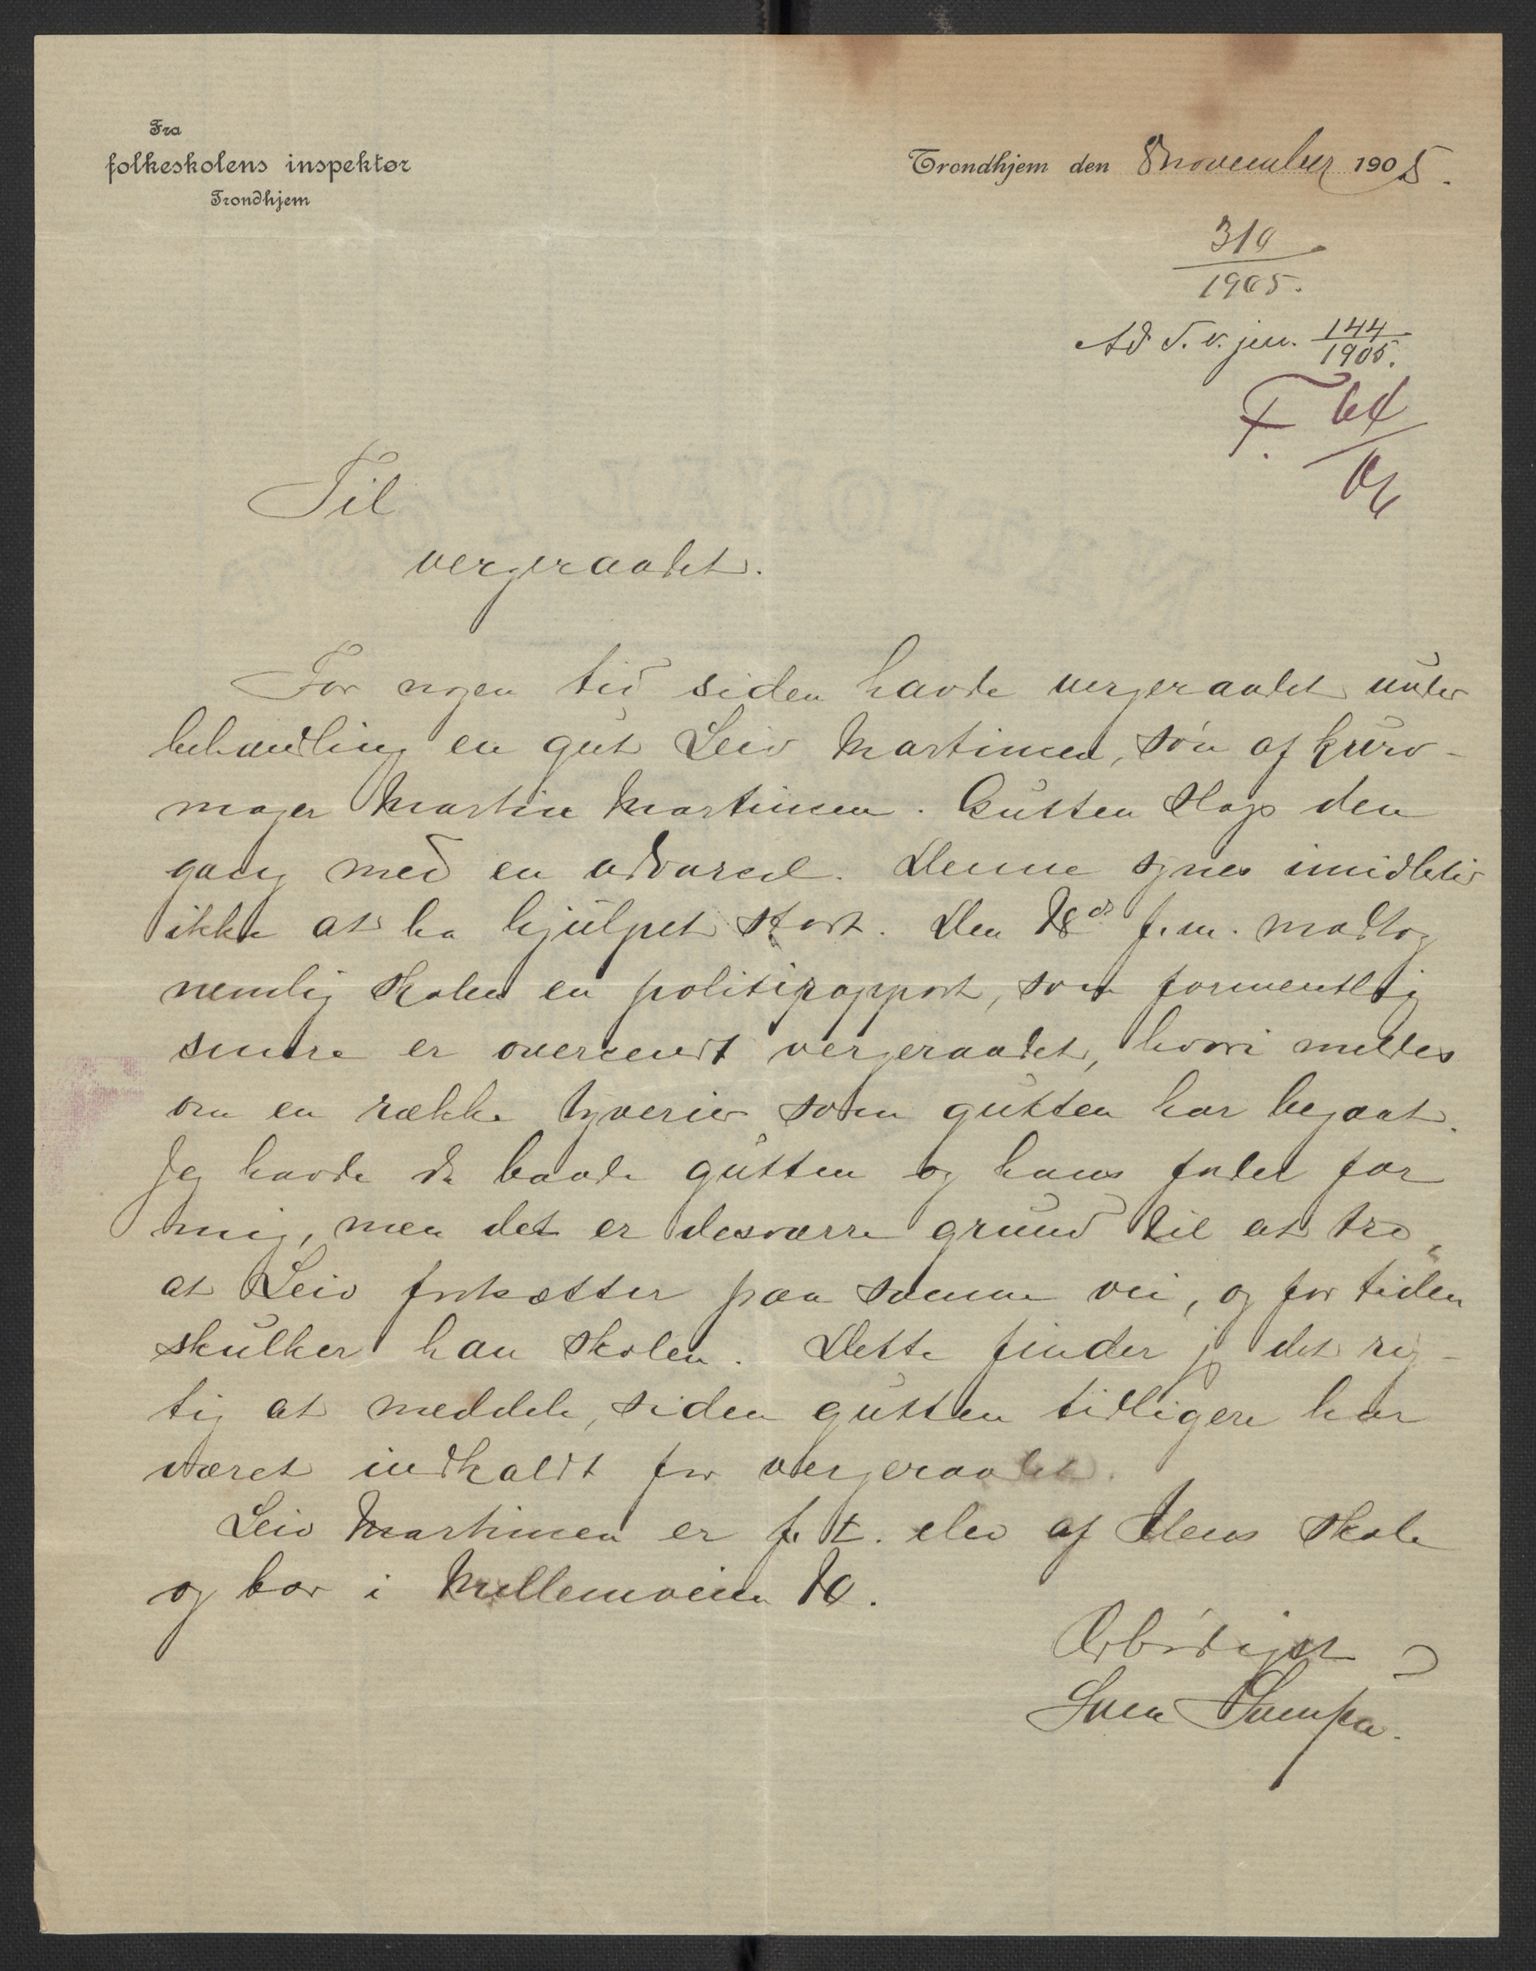 Fra
folkeskolens inspektør
Trondhjem
Trondhjem den 8 november 1905.
310
1905.
Ad v. jnr. 144
1905.
F. 64
06
Til
vergeraadet.
For nogen tid siden havde vergeraadet under
behandling en gut Leiv Martinsen, søn af kurv-
mager Martin Martinsen. Gutten slap den
gang med en advarsel. Denne synes imidlertid
ikke at ha hjulpet stort. Den 18de f. m. modtog
nemlig skolen en politirapport, som formentlig
senere er oversendt vergeraadet, hvori meldes
om en række tyverier som gutten har begaat.
Jeg havde da baade gutten og hans fader for
mig, men det er desværre grund til at tro,
at Leiv fortsætter paa samme vei, og for tiden
skulker han skolen. Dette finder jeg det rig-
tig at meddele, siden gutten tidligere har
været indkaldt for vergeraadet.
Leiv Martinsen er f. t. elev af Ilens skole
og bor i Mellemveien 10.
Ærbødigst
Sven Svensen.
NATIONAL POST